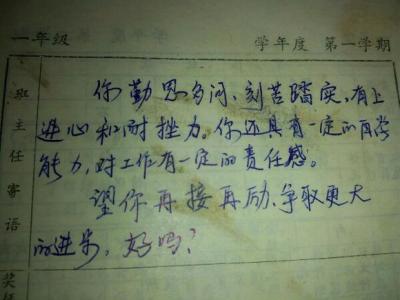 一年级 学年度 第一学期
班主任寄语
你勤思多问、刻苦踏实,有上
进心和耐挫力。你还具有一定的自学
能力,对工作有一定的责任感。
望你再接再励、争取更大
的进步,好吗?
奖